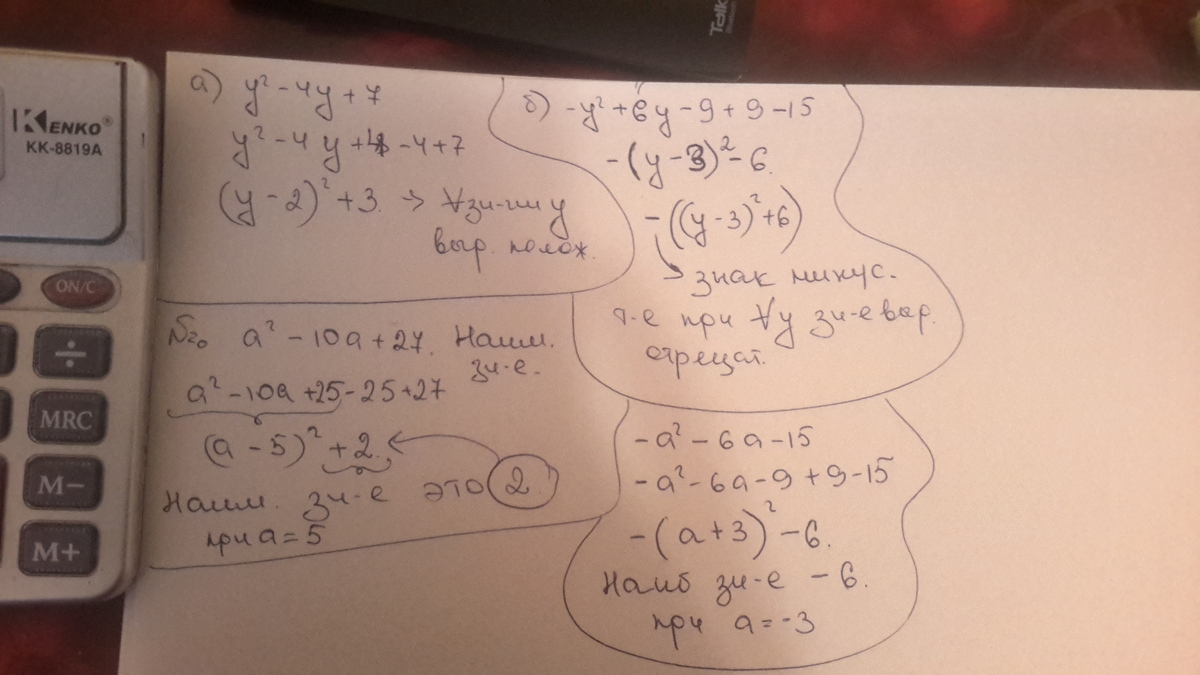 Talk
KENKO®
KK-8819A
ON/C
÷
MRC
M−
M+
а) y² - 4y + 7
y² - 4y + 4 - 4 + 7
(y - 2)² + 3. → ∀ зн-ии y
выр. полож.
б) -y² + 6y - 9 + 9 - 15
-(y - 3)² - 6.
-((y - 3)² + 6)
знак минус.
т-е при ∀y зн-е выр.
отрецат.
№2. a² - 10a + 27. Наим.
зн-е.
a² - 10a + 25 - 25 + 27
(a - 5)² + 2.
Наим. зн-е это 2.
при a = 5
-a² - 6a - 15
-a² - 6a - 9 + 9 - 15
-(a + 3)² - 6.
Наиб зн-е - 6.
при a = -3